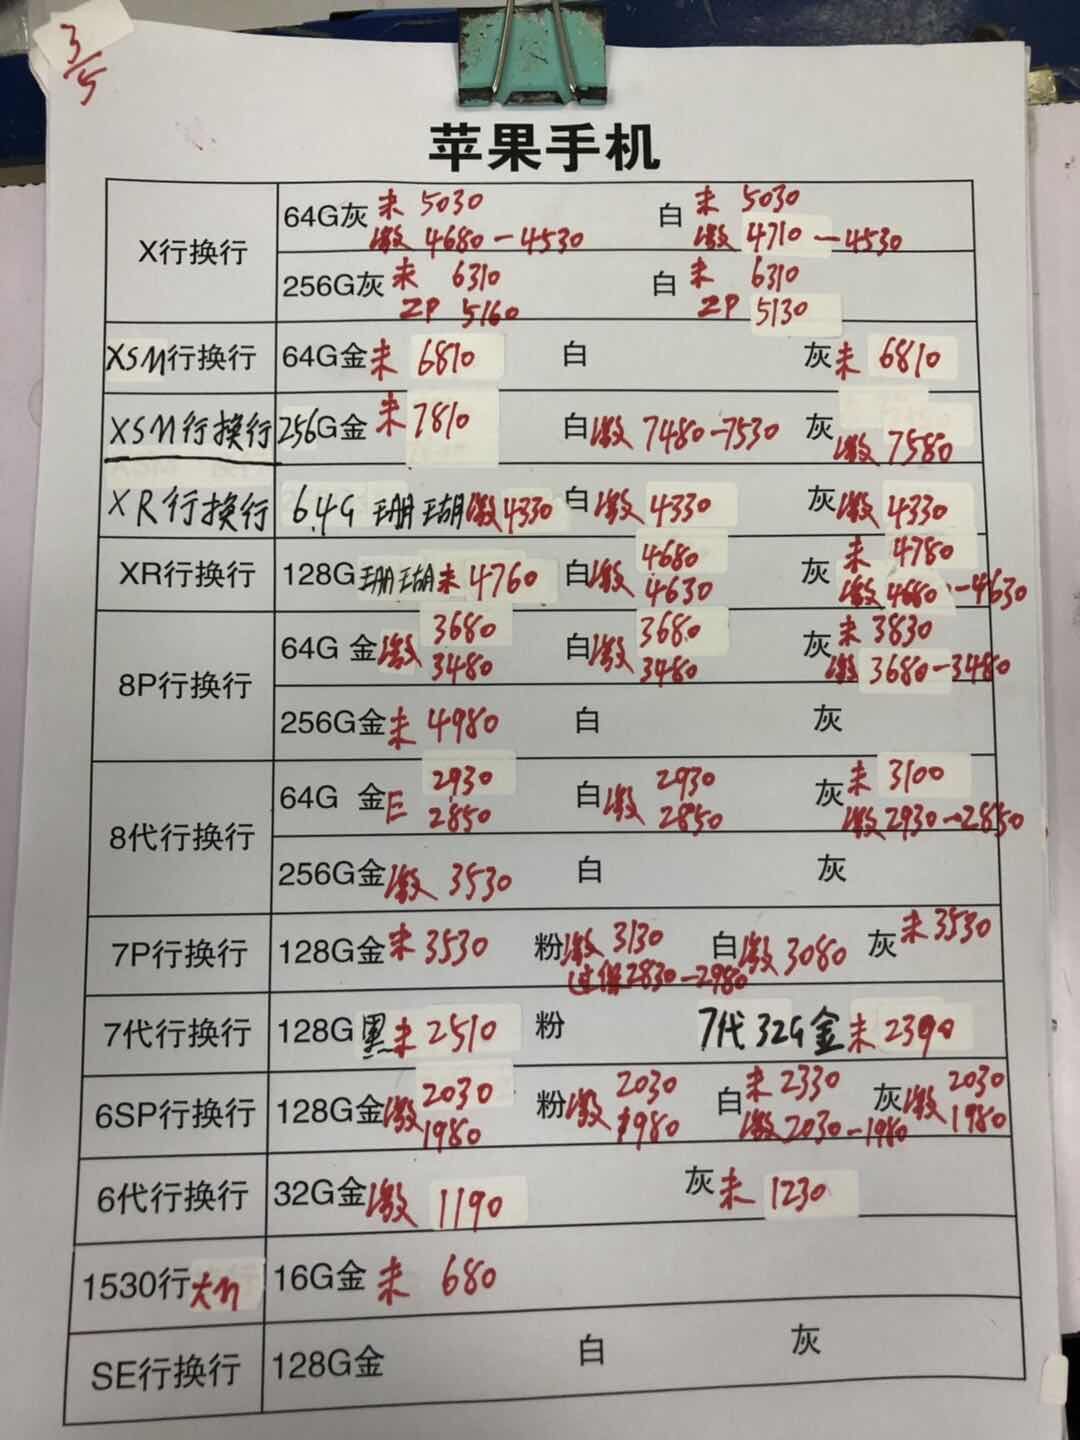 3/5
苹果手机
X行换行 64G灰 未 5030 白 未 5030
激 4680-4530 激 4710-4530
256G灰 未 6310 白 未 6310
ZP 5160 ZP 5130
XSM行换行 64G金 未 6810 白 灰 未 6810
XSM行换行 256G金 未 7810 白 激 7480-7530 灰 激 7580
XR行换行 64G 珊瑚 激 4330 白 激 4330 灰 激 4330
XR行换行 128G 珊瑚 未 4760 白 激 4680 4630 灰 未 4780
激 4680-4630
8P行换行 64G 金 激 3680 3480 白 激 3680 3480 灰 未 3830
激 3680-3480
256G金 未 4980 白 灰
8代行换行 64G 金 E 2930 2850 白 激 2930 2850 灰 未 3100
激 2930-2850
256G金 激 3530 白 灰
7P行换行 128G金 未 3530 粉 激 3130 白 激 3080 灰 未 3530
过保 2830-2980
7代行换行 128G 黑 未 2510 粉 7代 32G 金 未 2390
6SP行换行 128G金 激 2030 1980 粉 激 2030 1980 白 未 2330 灰 激 2030 1980
激 2030-1980
6代行换行 32G金 激 1190 灰 未 1230
1530行 16G金 未 680
SE行换行 128G金 白 灰